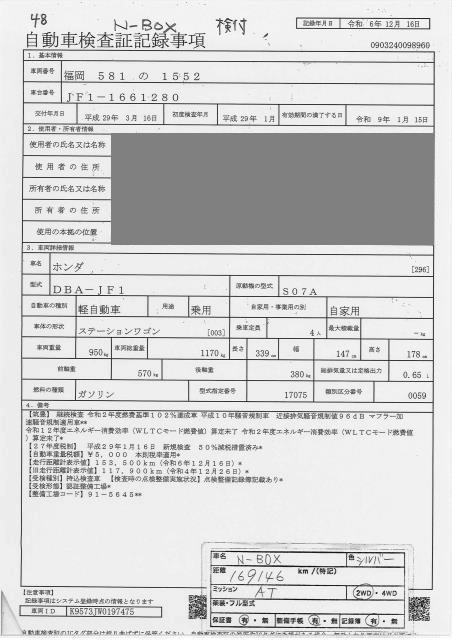 48 N-BOX 検付
記録年月日 令和 6年 12月 16日
自動車検査証記録事項 0903240098960
1. 基本情報
車両番号 福岡 581 の 1552
車台番号 JF1-1661280
交付年月日 平成 29年 3月 16日 初度検査年月 平成 29年 1月 有効期間の満了する日 令和 9年 1月 15日
2. 使用者・所有者情報
使用者の氏名又は名称
使用者の住所
所有者の氏名又は名称
所有者の住所
使用の本拠の位置
3. 車両詳細情報
車名 ホンダ [296]
型式 DBA-JF1 原動機の型式 S07A
自動車の種別 軽自動車 用途 乗用 自家用・事業用の別 自家用
車体の形状 ステーションワゴン [003] 乗車定員 4人 最大積載量 -kg
車両重量 950kg 車両総重量 1170kg 長さ 339cm 幅 147cm 高さ 178cm
前軸重 570kg 後軸重 380kg 総排気量又は定格出力 0.65 L
燃料の種類 ガソリン 型式指定番号 17075 類別区分番号 0059
4. 備考
【筑豊】 継続検査 令和2年度燃費基準102%達成車 平成10年騒音規制車 近接排気騒音規制値96dB マフラー加
速騒音規制適用車**
令和12年度エネルギー消費効率（WLTCモード燃費値）算定未了 令和2年度エネルギー消費効率（WLTCモード燃費値
）算定未了*
【27年度税制】 平成29年1月16日 新規検査 50%減税措置済み*
【自動車重量税額】¥5,000 本則税率適用*
【走行距離計表示値】153,500km（令和6年12月16日）*
【旧走行距離計表示値】117,900km（令和4年12月26日）*
【受検種別】持込検査車 【検査時の点検整備実施状況】点検整備記録簿記載あり*
【受検形態】認証整備工場*
【整備工場コード】91-5645**
車名 N-BOX 色 シルバー
距離 169146 km/(特記)
ミッション AT 2WD・4WD
架装・フル型式
保証書 有・無 整備手帳 有・無 記録簿 有・無
【注意事項】
記録事項はシステム登録時点の情報となります
車両ID K9573JW0197475